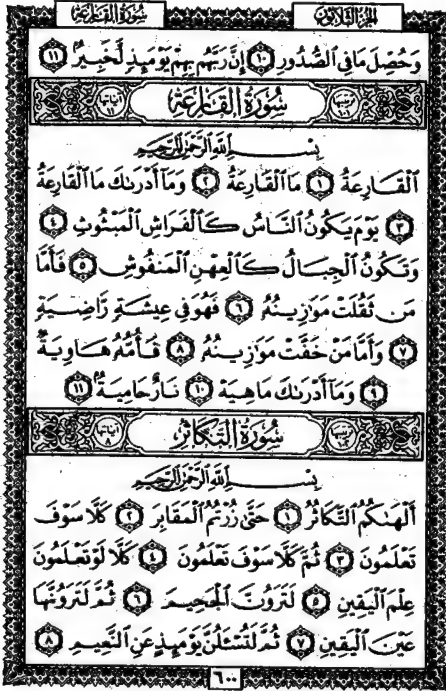 الجزء الثلاثون
سورة القارعة
وَحُصِّلَ مَا فِي الصُّدُورِ ١٠ إِنَّ رَبَّهُم بِهِمْ يَوْمَئِذٍ لَّخَبِيرٌ ١١
سُورَةُ القَارِعَة
بِسْمِ اللَّهِ الرَّحْمَٰنِ الرَّحِيمِ
الْقَارِعَةُ ١ مَا الْقَارِعَةُ ٢ وَمَا أَدْرَىٰكَ مَا الْقَارِعَةُ
٣ يَوْمَ يَكُونُ النَّاسُ كَالْفَرَاشِ الْمَبْثُوثِ ٤
وَتَكُونُ الْجِبَالُ كَالْعِهْنِ الْمَنفُوشِ ٥ فَأَمَّا
مَن ثَقُلَتْ مَوَٰزِينُهُ ٦ فَهُوَ فِي عِيشَةٍ رَّاضِيَةٍ
٧ وَأَمَّا مَنْ خَفَّتْ مَوَٰزِينُهُ ٨ فَأُمُّهُ هَاوِيَةٌ
٩ وَمَا أَدْرَىٰكَ مَا هِيَهْ ١٠ نَارٌ حَامِيَةٌ ١١
سُورَةُ التَّكَاثُر
بِسْمِ اللَّهِ الرَّحْمَٰنِ الرَّحِيمِ
أَلْهَىٰكُمُ التَّكَاثُرُ ١ حَتَّىٰ زُرْتُمُ الْمَقَابِرَ ٢ كَلَّا سَوْفَ
تَعْلَمُونَ ٣ ثُمَّ كَلَّا سَوْفَ تَعْلَمُونَ ٤ كَلَّا لَوْ تَعْلَمُونَ
عِلْمَ الْيَقِينِ ٥ لَتَرَوُنَّ الْجَحِيمَ ٦ ثُمَّ لَتَرَوُنَّهَا
عَيْنَ الْيَقِينِ ٧ ثُمَّ لَتُسْـَٔلُنَّ يَوْمَئِذٍ عَنِ النَّعِيمِ ٨
٦٠٠